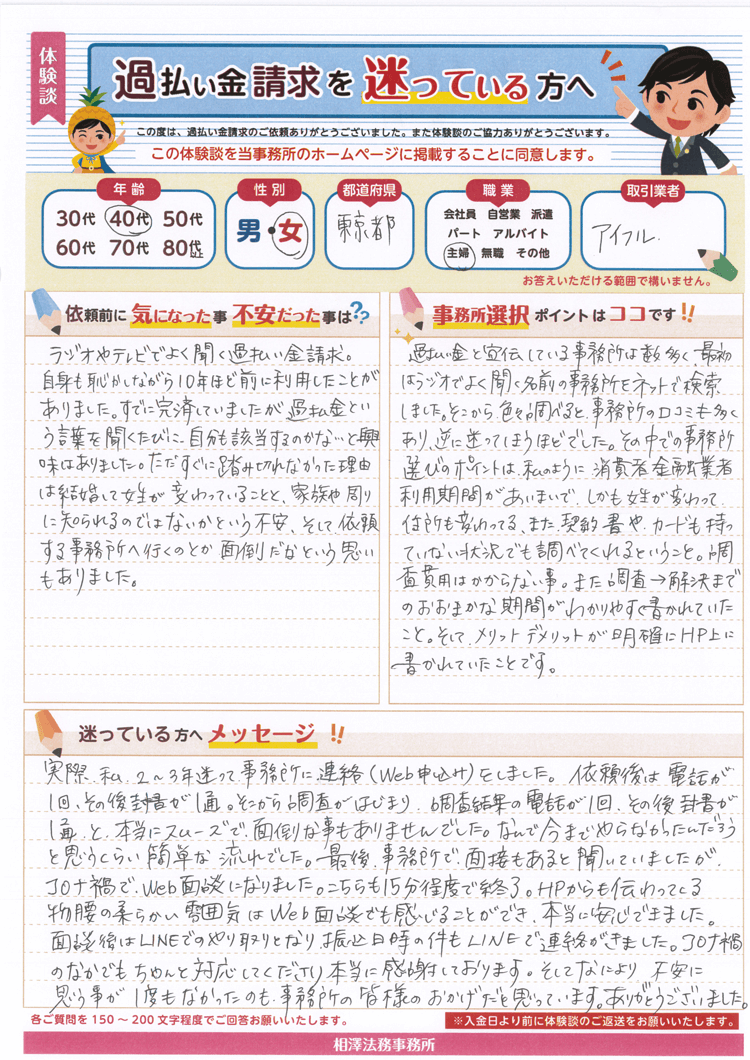 体験談
過払い金請求を迷っている方へ
この度は、過払い金請求のご依頼ありがとうございました。また体験談のご協力ありがとうございます。
この体験談を当事務所のホームページに掲載することに同意します。
年齢
30代 40代 50代
60代 70代 80代以上
性別
男・女
都道府県
東京都
職業
会社員 自営業 派遣
パート アルバイト
主婦 無職 その他
取引業者
アイフル.
お答えいただける範囲で構いません。
依頼前に気になった事 不安だった事は??
ラジオやテレビでよく聞く過払い金請求。
自身も恥かしながら10年ほど前に利用したことが
ありました。すでに完済していましたが過払金とい
う言葉を聞くたびに自分も該当するのかな…と興
味はありました。ただすぐに踏み切れなかった理由
は結婚して姓が変わっていることと、家族や周り
に知られるのではないかという不安、そして依頼
する事務所へ行くのとか面倒だなという思い
もありました。
事務所選択ポイントはココです!!
過払い金と宣伝している事務所は数多く、最初
はラジオでよく聞く名前の事務所をネットで検索
しました。そこから色々調べると、事務所の口コミも多く
あり、逆に迷ってしまうほどでした。その中での事務所
選びのポイントは、私のように消費者金融業者
利用期間があいまいで、しかも姓が変わって
住所も変わってる、また、契約書や、カードも持っ
ていない状況でも調べてくれるということ。調
査費用はかからない事。また調査→解決まで
のおおまかな期間がわかりやすく書かれていた
こと。そして、メリットデメリットが明確にHP上に
書かれていたことです。
迷っている方へメッセージ!!
実際、私、2〜3年迷って事務所に連絡(Web申込み)をしました。依頼後は電話が
1回、その後封書が1通。そこから調査がはじまり、調査結果の電話が1回、その後封書が
1通、と、本当にスムーズで、面倒な事もありませんでした。なんで今までやらなかったんだろう
と思うくらい簡単な流れでした。最後、事務所で、面接もあると聞いていましたが、
コロナ禍で、Web面談になりました。こちらも15分程度で終了。HPからも伝わってくる
物腰の柔らかい雰囲気はWeb面談でも感じることができ、本当に安心できました。
面談後はLINEでのやり取りとなり振込日時の件もLINEで連絡がきました。コロナ禍
のなかでもちゃんと対応してくださり本当に感謝しております。そしてなにより不安に
思う事が1度もなかったのも、事務所の皆様のおかげだと思っています。ありがとうございました。
各ご質問を150〜200文字程度でご回答お願いいたします。
※入金日より前に体験談のご返送をお願いいたします。
相澤法務事務所